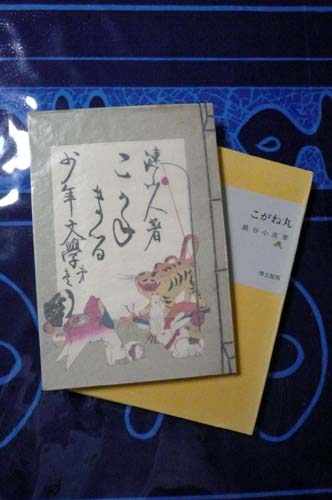 漣山人著
こがね
まる
少年文學第一
こがね丸
巖谷小波著
博文館版